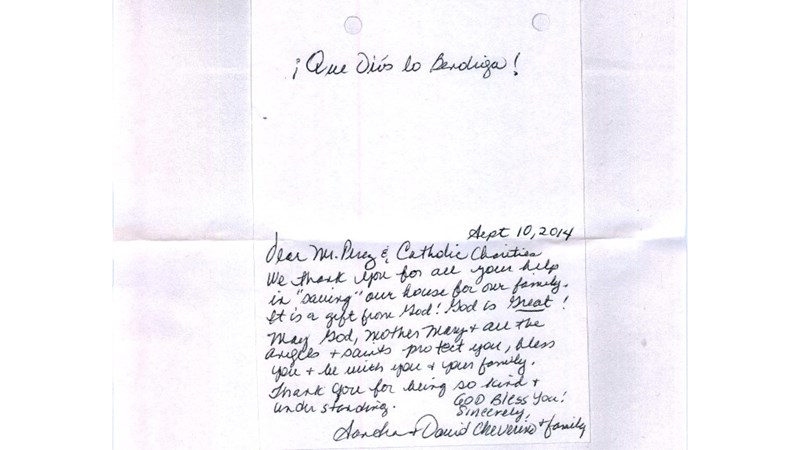 ¡Que Diós lo Bendiga!
Sept 10, 2014
Dear Mr. Perez & Catholic Charities
We thank you for all your help
in "saving" our house for our family.
It is a gift from God! God is Great!
May God, Mother Mary + all the
angels + saints protect you, bless
you + be with you + your family.
Thank you for being so kind +
understanding. GOD Bless You!
Sincerely,
Sandra + David + family